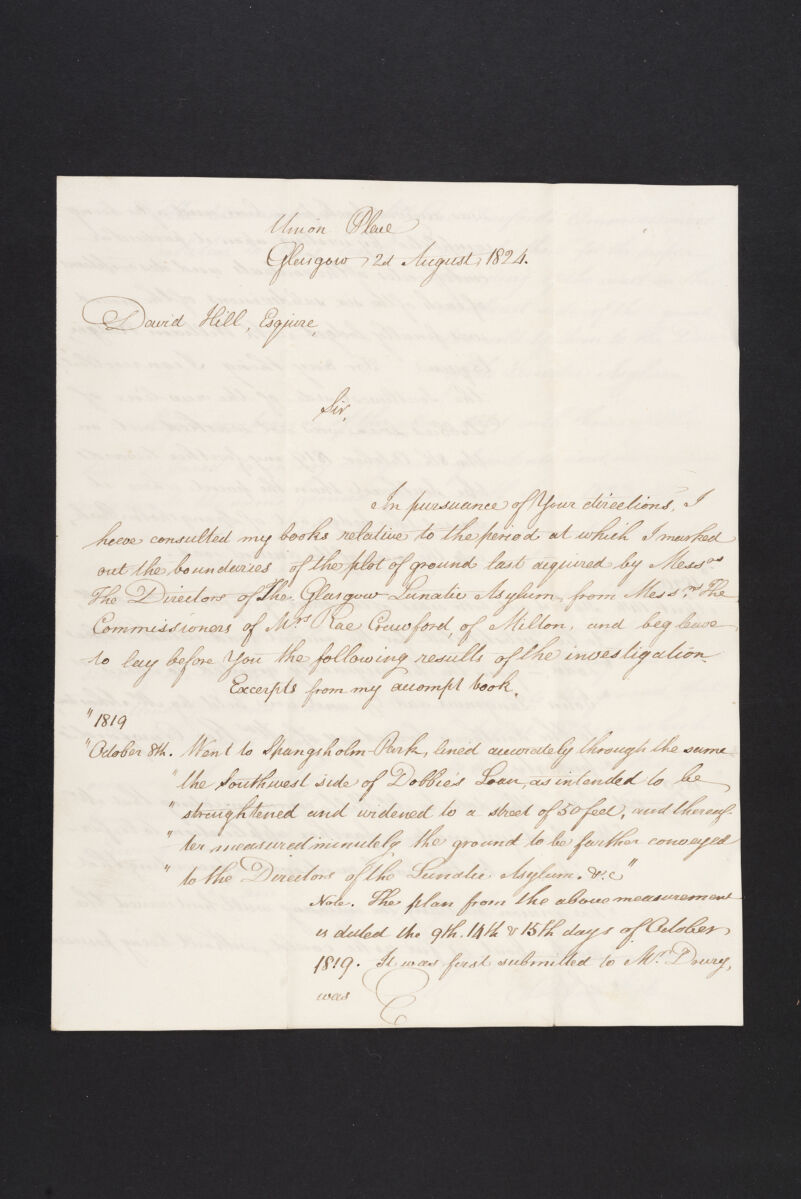 Union Place
Glasgow, 2d August, 1824.
David Hill, Esquire,
Sir,
In pursuance of Your directions, I
have consulted my books relative to the period at which I marked
out the boundaries of the plot of ground last acquired by Messrs
The Directors of The Glasgow Lunatic Asylum, from Messrs The
Commissioners of Mrs Rae Crawford, of Milton, and beg leave
to lay before You the following results of the investigation.
Excerpts from my accompt book.
" 1819
" October 8th. Went to Spangsholm Park, lined accurately through the same
" the Southwest side of Dobbie's Loan, as intended to be
" straightened and widened to a street of 50 feet, and thereaf-
" ter measured minutely the ground to be farther conveyed
" to the Directors of the Lunatic Asylum. &c "
Note. The plan from the above measurement
is dated the 9th. 14th & 15th days of October
1819. It was first submitted to Mr. Drury,
was